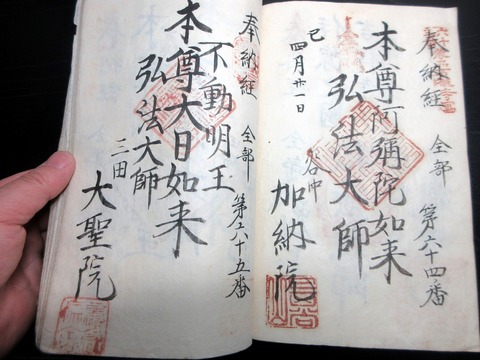 奉納経
全部
第六十四番
本尊阿彌陀如来
弘法大師
巳
四月廿一日
谷中
加納院
奉納経
全部
第六十五番
不動明王
本尊大日如来
弘法大師
三田
大聖院